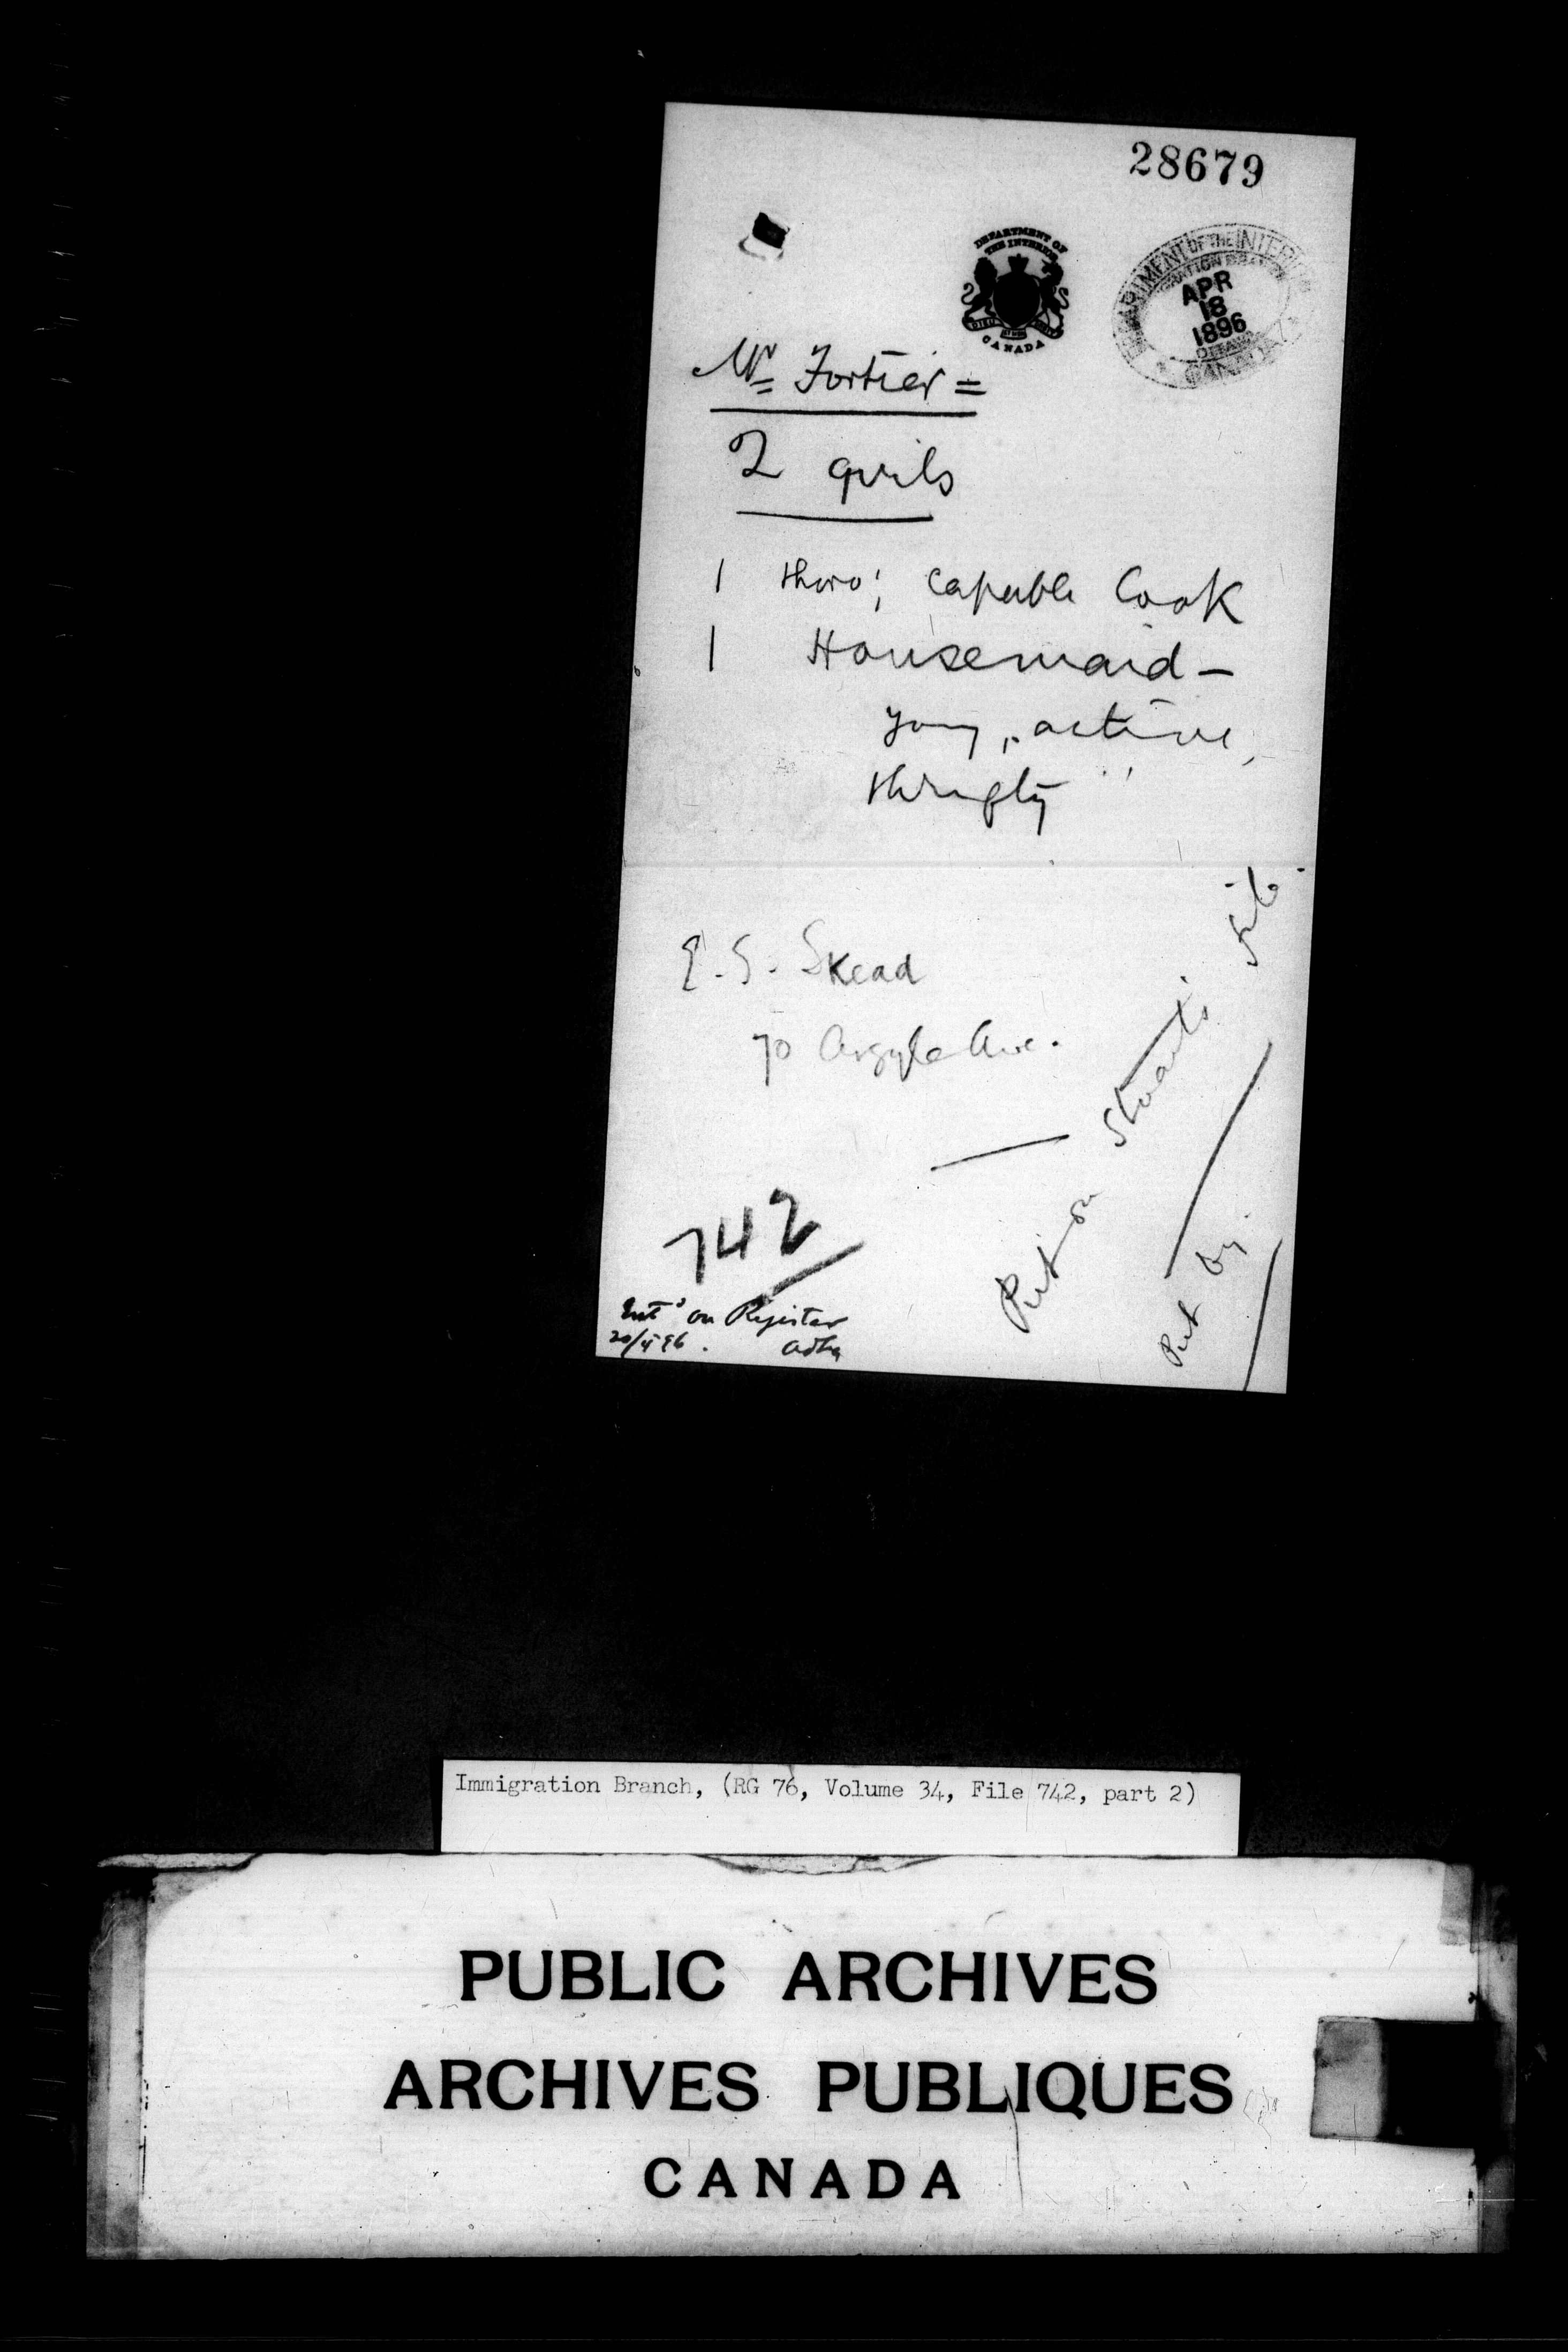 28679
DEPARTMENT OF
THE INTERIOR
CANADA
DEPARTMENT OF THE INTERIOR
APR
18
1896
OTTAWA
CANADA
Mr Fortier =
2 girls
1 thoro; capable Cook
1 Housemaid -
young, active,
thrifty
E. S. Skead
70 Argyle Ave.
Put on Stuart's
Put by
742
Entd on Register
20/4/96.
Immigration Branch, (RG 76, Volume 34, File 742, part 2)
PUBLIC ARCHIVES
ARCHIVES PUBLIQUES
CANADA